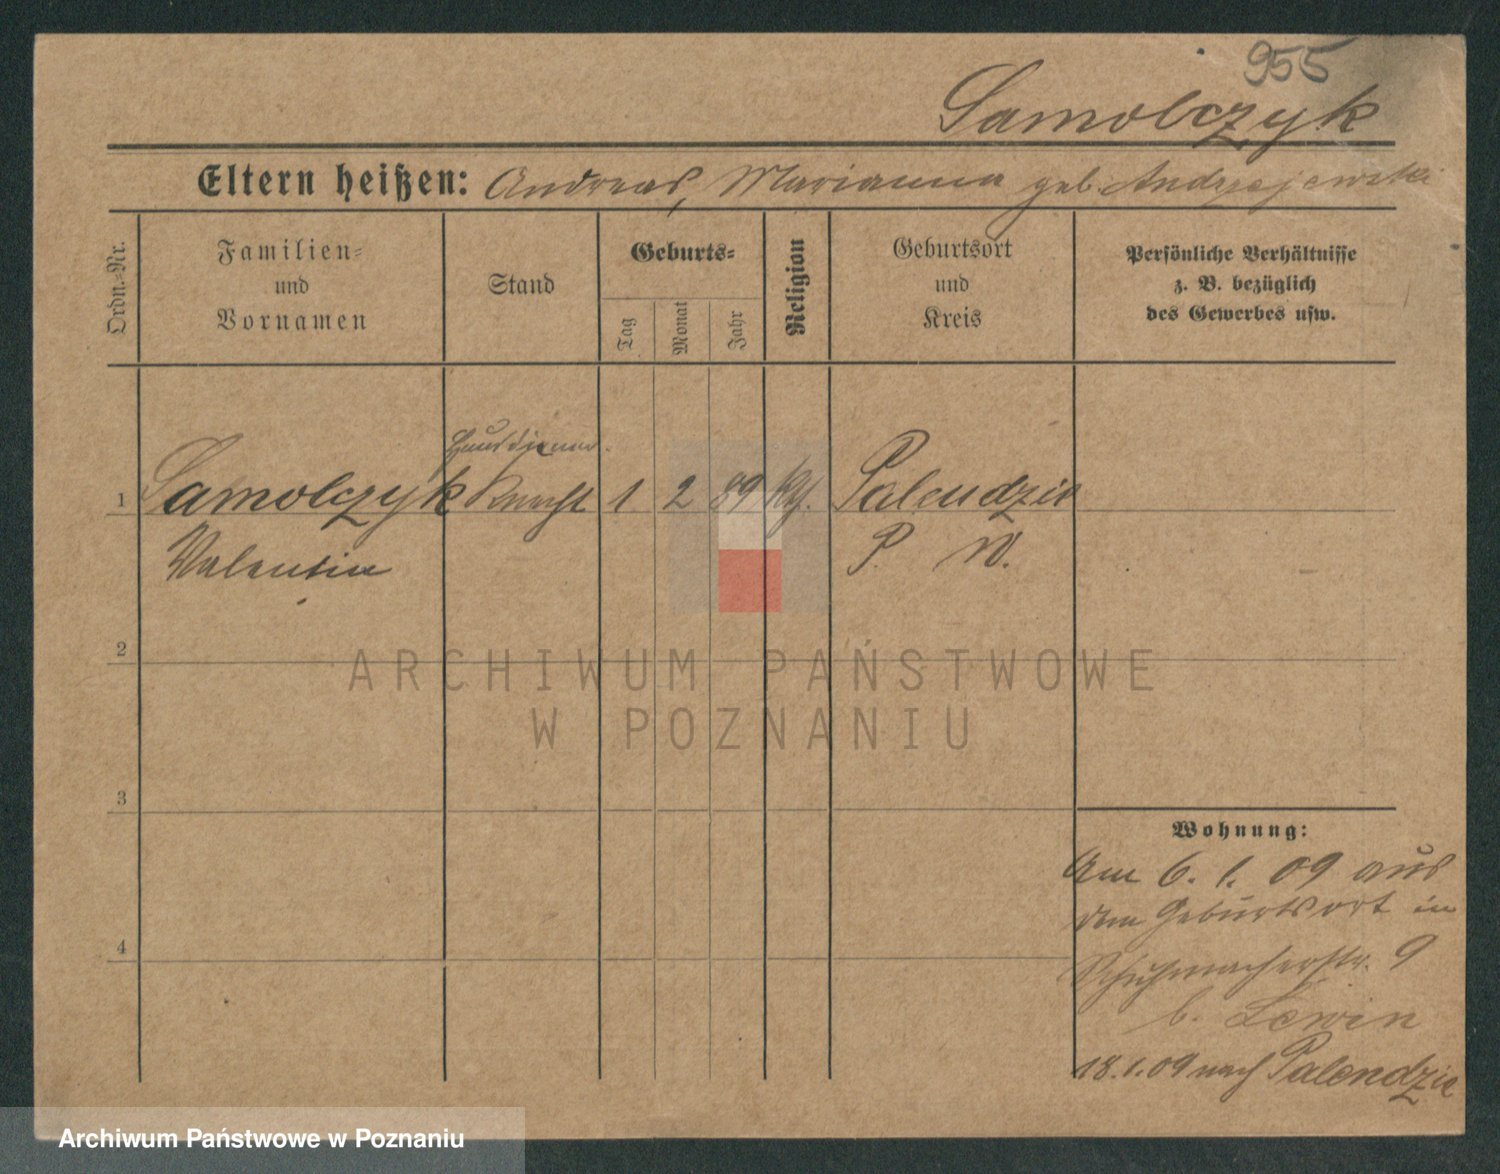 955
Samolczyk
Eltern heißen: Andreas, Marianna geb. Andrzejewska
Ordn.-Nr.
Familien-
und
Vornamen
Stand
Geburts-
Tag
Monat
Jahr
Religion
Geburtsort
und
Kreis
Persönliche Verhältnisse
z. B. bezüglich
des Gewerbes usw.
Hausdiener
1 Samolczyk Knecht 1 2 89 kth. Palendzie
Valentin P. W.
2
3
4
Wohnung:
Am 6. 1. 09 aus
dem Geburtsort in
Schuhmacherstr. 9
b. Lewin
18.1.09 nach Palendzie
ARCHIWUM PAŃSTWOWE
W POZNANIU
Archiwum Państwowe w Poznaniu